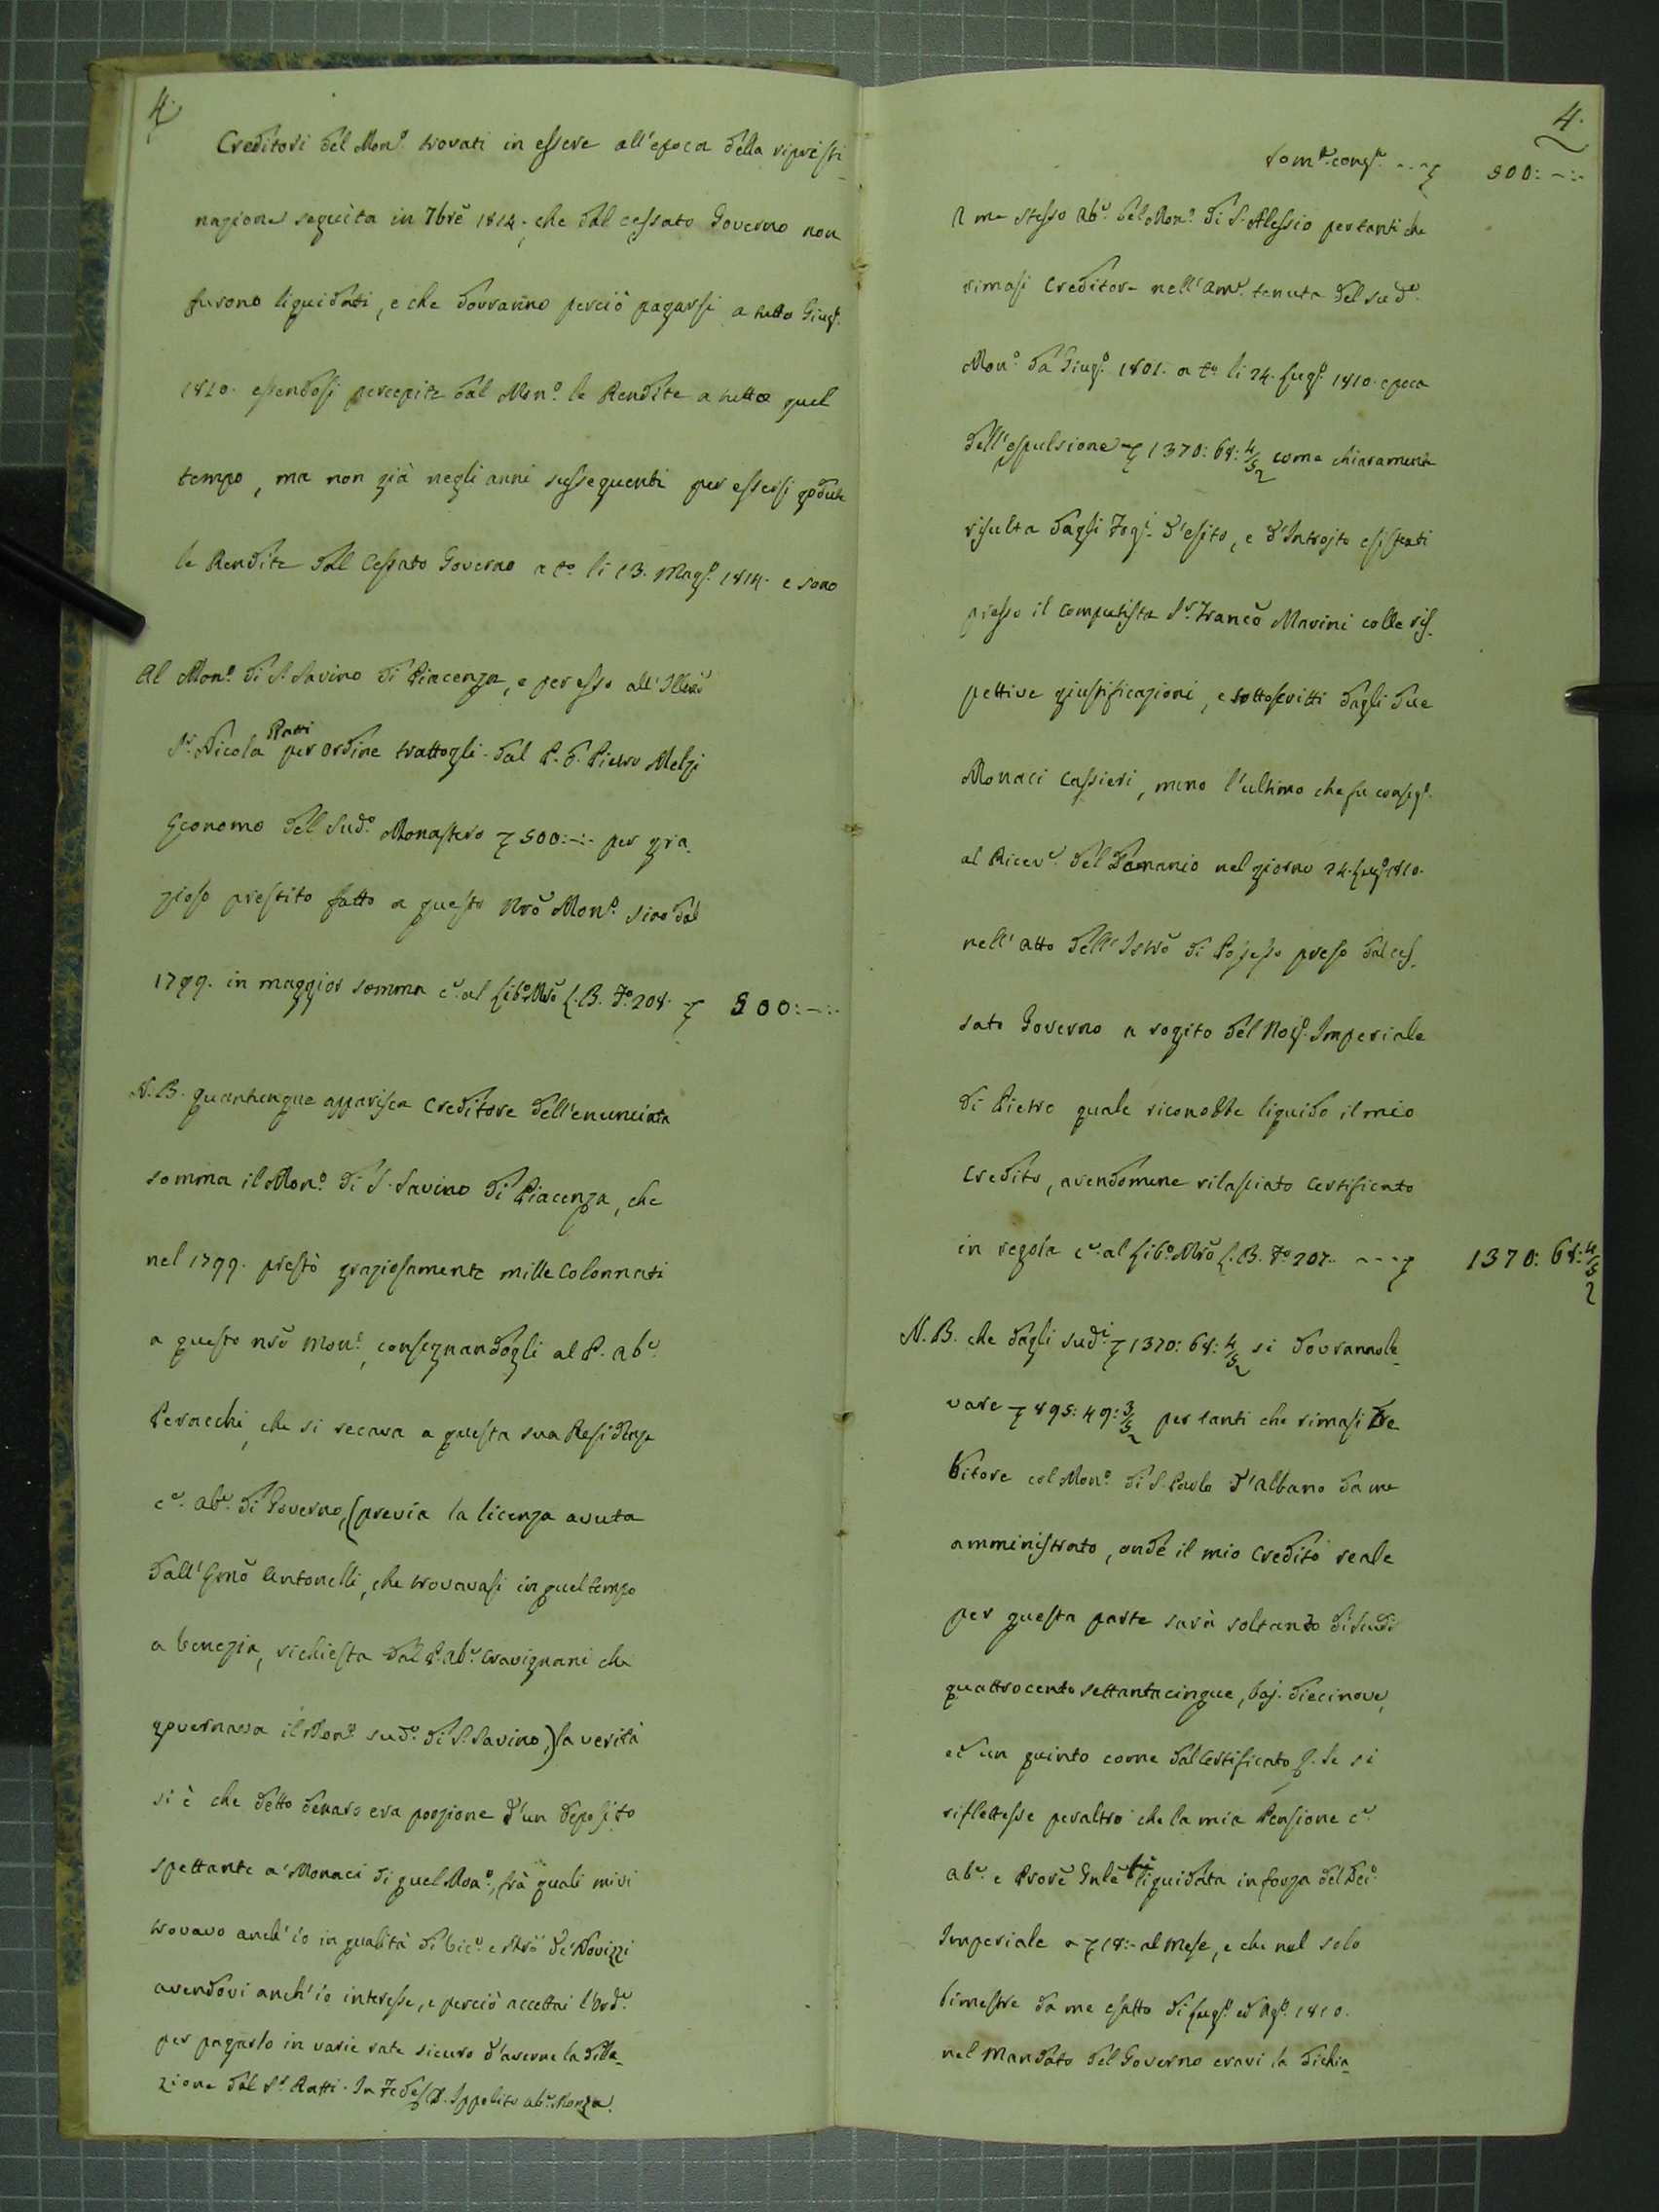 4.
Creditori del Mon.º trovati in essere all'epoca della ripristi-
nazione seguita in 7brẽ 1814., che dal cessato Governo non
furono liquidati, e che dovranno perciò pagarsi a tutto Giug.º
1810. essendosi percepite dal Mon.º le Rendite a tutto quel
tempo, ma non già negli anni susseguenti per essersi godute
le Rendite dal Cessato Governo a t.º li 13. Mag.º 1814. e sono
Al Mon.º di S. Savino di Piacenza, e per esso all'Illmõ
S.r Nicola Ratti per ordine trattogli dal P. D. Pietro Melzi
Economo del Sud.º Monastero 500:-:- per gra-
zioso prestito fatto a questo Nrõ Mon.º sino dal
1799. in maggior somma c.e al Lib.º Mrõ L. B. F.º 208. 500:-:-
N. B. quantunque apparisca Creditore dell'enunciata
somma il Mon.º di S. Savino di Piacenza, che
nel 1799. prestò graziosamente mille Colonnati
a questo nrõ Mon.º, consegnandogli al P. Ab.e
Peracchi, che si recava a questa sua Residenza
c.e Ab.e di Governo, (previa la licenza avuta
dall'Emõ Antonelli, che trovavasi in quel tempo
a Venezia, richiesta dal P. Ab.e Cravignani che
governava il Mon.º sud.º di S. Savino,) la verità
si è che detto denaro era porzione d'un deposito
spettante a' Monaci di quel Mon.º, frà quali mivi
trovavo anch'io in qualità di Vic.º e Mrõ de' Novizzi
avendovi anch'io interesse, e perciò accettai l'Ord.e
per pagarlo in varie rate sicuro d'averne la dila-
zione dal S.r Ratti. In Fede D. Ippolito Ab.e Monza.
4.
Som.ª cong.ª ... 500:-:-
A me stesso Ab.e del Mon.º di S. Alessio per tanti che
rimasi Creditore nell'Am.e tenuta del sud.º
Mon.º da Giug.º 1801. a t.º li 24. Lug.º 1810. epoca
dell'espulsione 1370: 68: 4/5 come chiaramente
risulta dagli Fog.i d'esito, e d'Introito esistenti
presso il Computista S.r Francõ Marini colle ris-
pettive giustificazioni, e sottoscritti dagli due
Monaci Cassieri, meno l'ultimo che fu conseg.º
al Ricev.e del Demanio nel giorno 24. Lug.º 1810.
nell'atto dell'Istrõ di Possesso preso dal ces-
sato Governo a rogito del Not.º Imperiale
di Pietro quale riconobbe liquido il mio
Credito, avendomene rilasciato Certificato
in regola c.e al Lib.º Mrõ L. B. F.º 207. .... 1370: 68: 4/5
N. B. che dagli sud.i 1370: 68: 4/5 si dovranno le-
vare 895: 49: 3/5 per tanti che rimasi De
bitore col Mon.º di S. Paolo d'Albano da me
amministrato, onde il mio Credito reale
per questa parte sarà soltanto di scudi
quattrocento settantacinque, baj. diecinove,
ed un quinto come dal Certificato. Se si
riflettesse peraltro che la mia Pensione c.e
Ab.e e Prorẽ Gnlẽ fù liquidata in forza del Dec.º
Imperiale a 18:- al Mese, e che nel solo
bimestre da me esatto di Lug.º ed Ag.º 1810.
nel Mandato del Governo eravi la dichia-